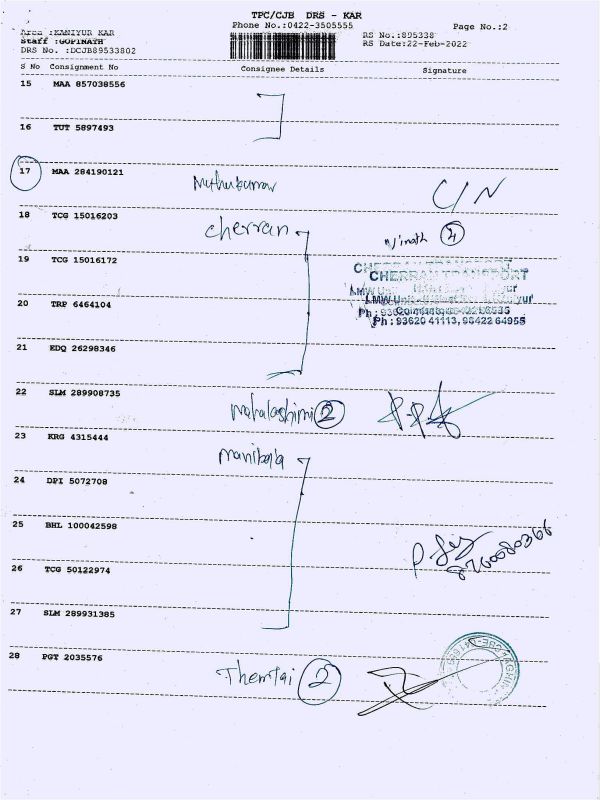 TPC/CJB DRS - KAR
Phone No.:0422-3505555
Page No.:2
Area :KANIYUR KAR
Staff :GOPINATH
DRS No. :DCJB89533802
RS No.:895338
RS Date:22-Feb-2022
S No Consignment No Consignee Details Signature
15 MAA 857038556
16 TUT 5897493
17 MAA 284190121 Muthukumar C/N
18 TCG 15016203 cherran
4
19 TCG 15016172
CHERRAN TRANSPORT
CHERRAN TRANSPORT
20 TRP 6464104
Ph : 93620 41113, 98422 64955
21 EDQ 26298346
22 SLM 289908735
mahalashimi 2
23 KRG 4315444
manibala
24 DPI 5072708
25 BHL 100042598
26 TCG 50122974
27 SLM 289931385
28 PGT 2035576
Themtai 2